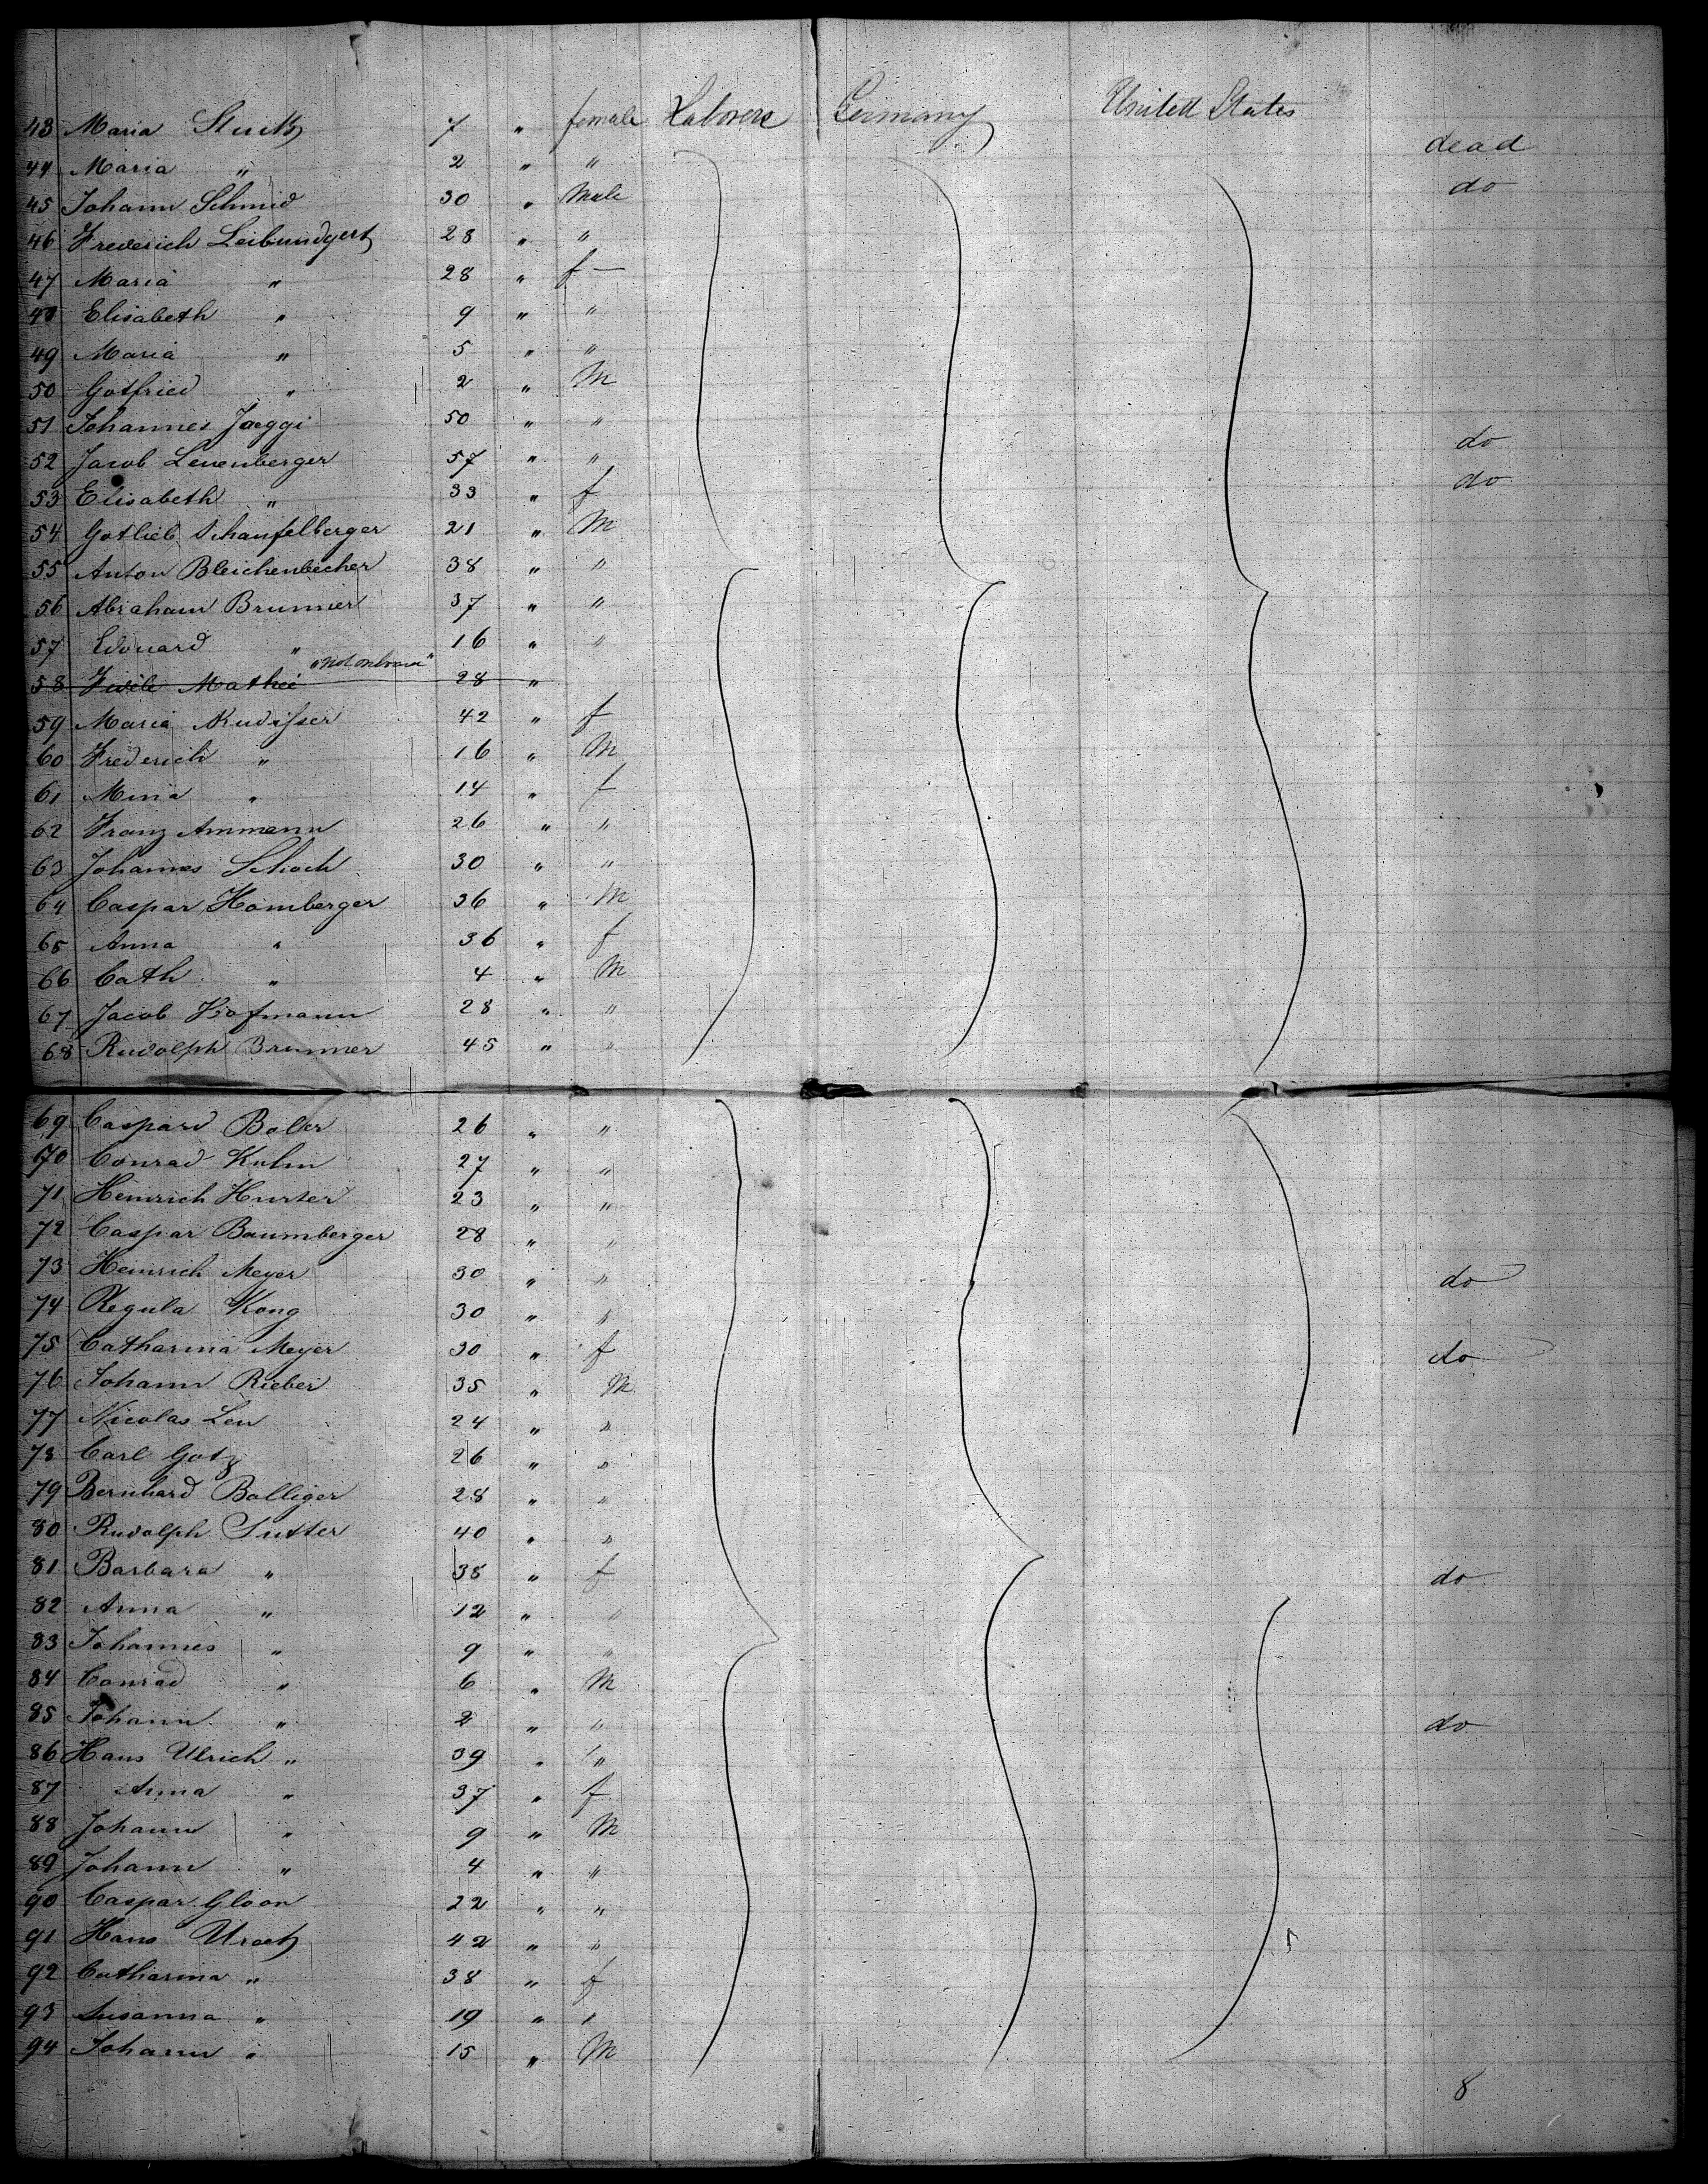 43 Maria Stutz 7 " female Laborers Germany United States
44 Maria " 2 " " dead
45 Johann Schmid 30 " Male do
46 Frederich Leibundgert 28 " "
47 Maria " 28 " f —
48 Elisabeth " 9 " "
49 Maria " 5 " "
50 Gotfried " 2 " M
51 Johannes Jaeggi 50 " "
52 Jacob Leuenberger 57 " " do
53 Elisabeth " 33 " f do
54 Gotlieb Schaufelberger 21 " M
55 Anton Bleichenbecher 38 " "
56 Abraham Brunner 37 " "
57 Edouard " 16 " "
"not on board"
58 Mathei 28 "
59 Maria 42 " f
60 Frederich " 16 " M
61 Mina " 14 " f
62 Franz Ammann 26 " "
63 Johannes Schoch 30 " "
64 Caspar Homberger 36 " M
65 Anna " 36 " f
66 Cath " 4 " M
67 Jacob Hofmann 28 " "
68 Rudolph Brunner 45 " "
69 Caspard Boler 26 " "
70 Conrad Kuhn 27 " "
71 Heinrich Hurter 23 " "
72 Caspar Baumberger 28 " "
73 Heinrich Meyer 30 " " do
74 Regula Kong 30 " "
75 Catharina Meyer 30 " f do
76 Johann Rieber 35 " M
77 Nicolas Leu 24 " "
78 Carl Gotz 26 " "
79 Bernhard Bolliger 28 " "
80 Rudolph Sutter 40 " "
81 Barbara " 35 " f do
82 Anna " 12 " "
83 Johannes " 9 " "
84 Conrad " 6 " M
85 Johann " 2 " " do
86 Hans Ulrich " 39 " "
87 Anna " 37 " f
88 Johann " 9 " M
89 Johann " 4 " "
90 Caspar Gloor 22 " "
91 Hans 42 " "
92 Catharina " 38 " f
93 Susanna " 19 " "
94 Johann " 15 " M
8